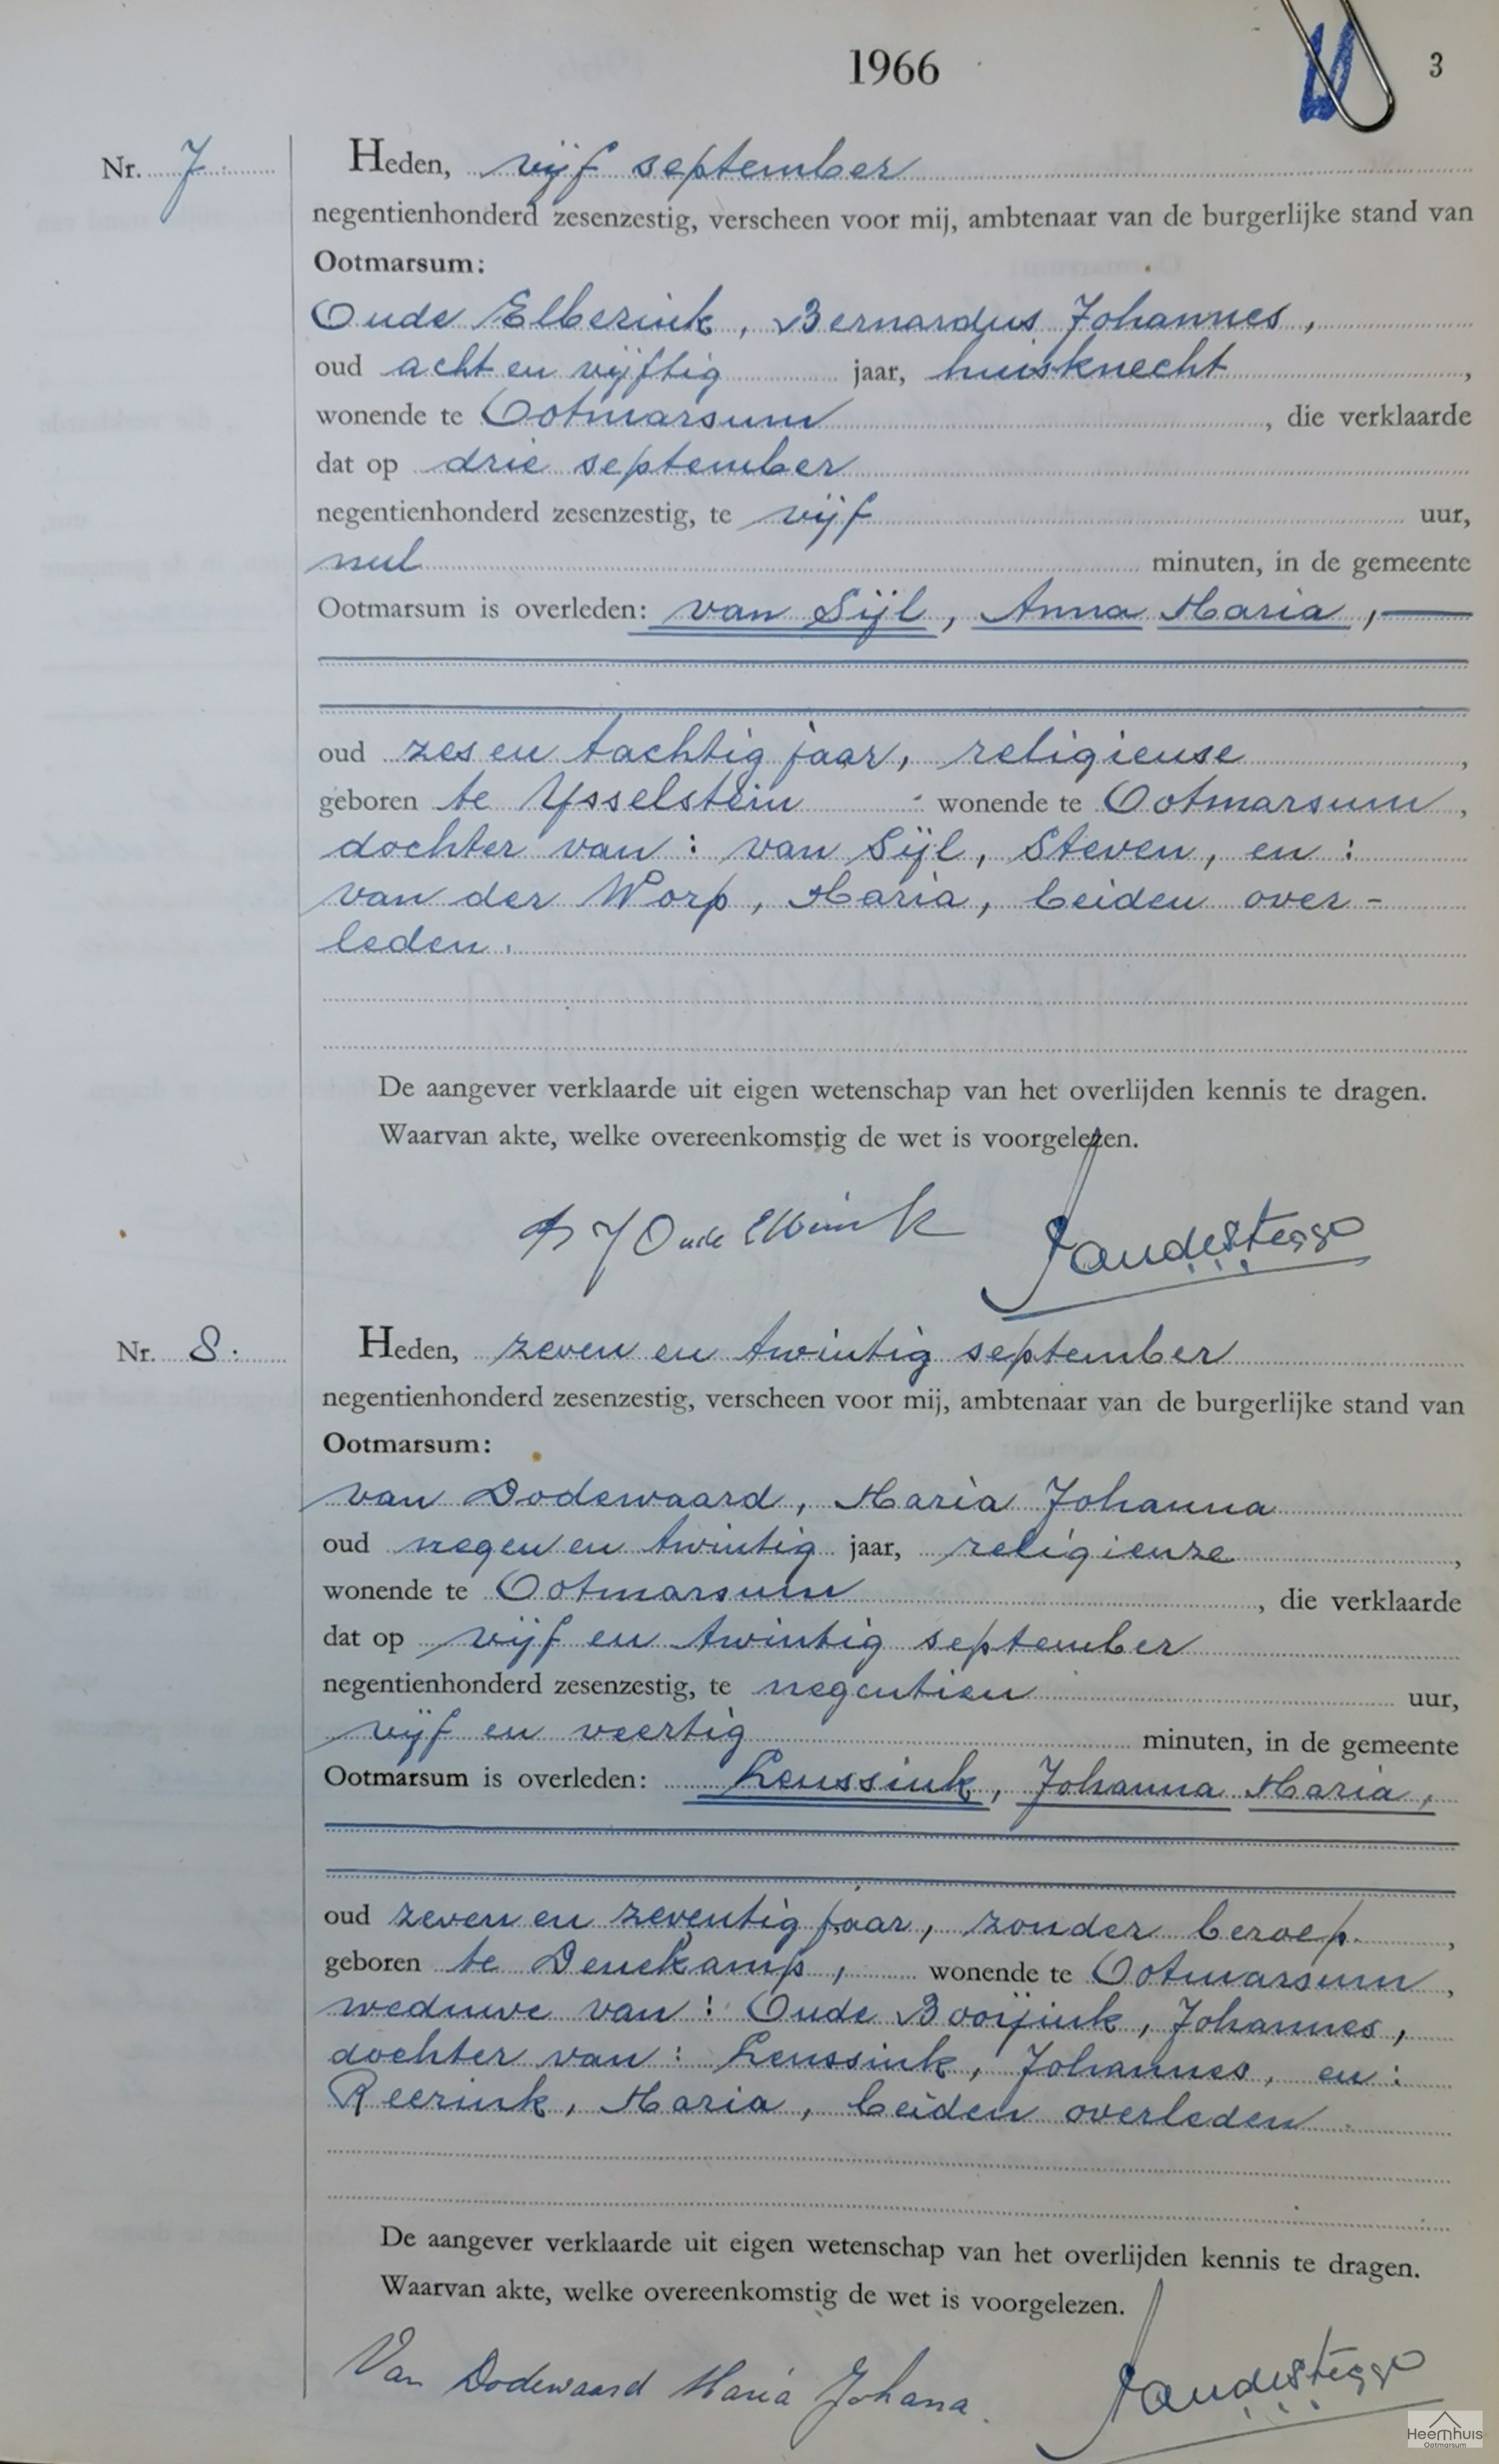 1966
3
Nr. 7.
Heden, vijf september
negentienhonderd zesenzestig, verscheen voor mij, ambtenaar van de burgerlijke stand van
Ootmarsum:
Oude Elberink, Bernardus Johannes,
oud acht en vijftig jaar, huisknecht,
wonende te Ootmarsum, die verklaarde
dat op drie september
negentienhonderd zesenzestig, te vijf uur,
nul minuten, in de gemeente
Ootmarsum is overleden: van Sijl, Anna Maria,
oud zes en tachtig jaar, religieuse,
geboren te Ysselstein wonende te Ootmarsum,
dochter van: van Sijl, Steven, en:
van der Worp, Maria, beiden over-
leden.
De aangever verklaarde uit eigen wetenschap van het overlijden kennis te dragen.
Waarvan akte, welke overeenkomstig de wet is voorgelezen.
B J Oude Elberink
Nr. 8.
Heden, zeven en twintig september
negentienhonderd zesenzestig, verscheen voor mij, ambtenaar van de burgerlijke stand van
Ootmarsum:
van Dodewaard, Maria Johanna
oud negen en twintig jaar, religieuze,
wonende te Ootmarsum, die verklaarde
dat op vijf en twintig september
negentienhonderd zesenzestig, te negentien uur,
vijf en veertig minuten, in de gemeente
Ootmarsum is overleden: Leussink, Johanna Maria,
oud zeven en zeventig jaar, zonder beroep,
geboren te Denekamp, wonende te Ootmarsum,
weduwe van: Oude Booijink, Johannes,
dochter van: Leussink, Johannes, en:
Reerink, Maria, beiden overleden.
De aangever verklaarde uit eigen wetenschap van het overlijden kennis te dragen.
Waarvan akte, welke overeenkomstig de wet is voorgelezen.
Van Dodewaard Maria Johana.
Heemhuis
Ootmarsum